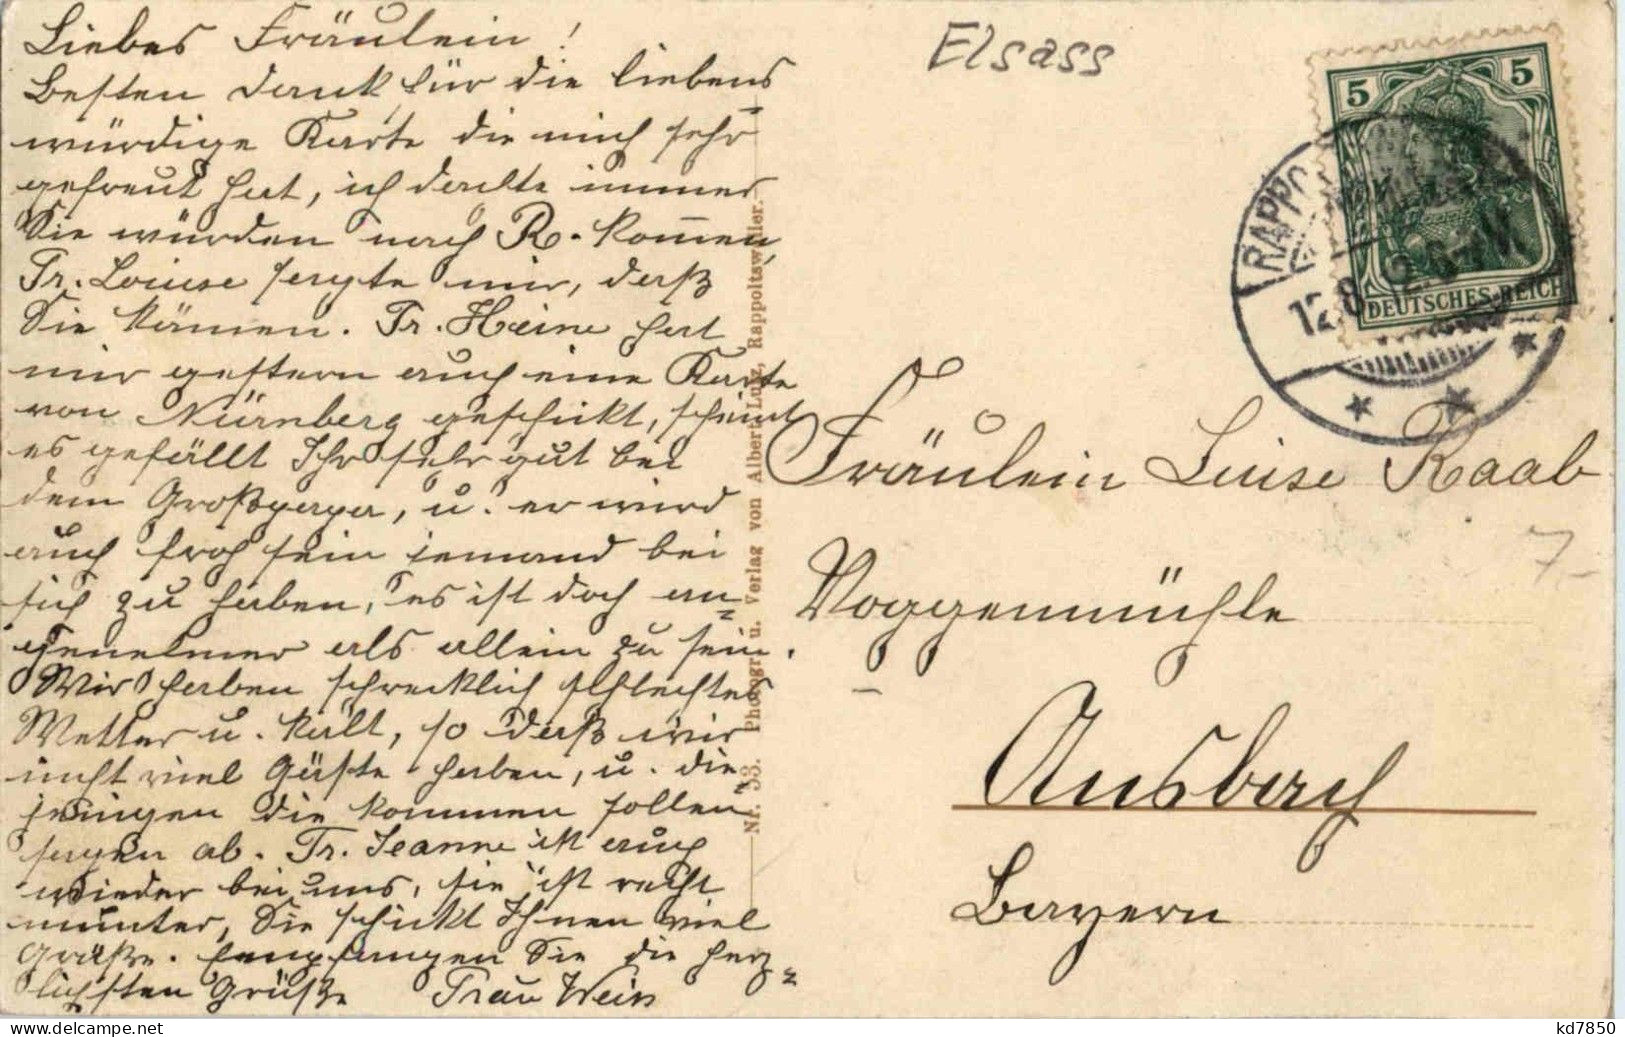 Liebes Fräulein!
Besten Dank für die liebens
würdige Karte die mich sehr
gefreut hat, ich dachte immer
Sie würden nach R. kom̄en,
Fr. Louise sagte mir, daß
Sie kämen. Fr. Heine hat
mir gestern auch eine Karte
von Nürnberg geschikt, scheint
es gefällt Ihr sehr gut bei
dem Großpapa, u. er wird
auch froh sein jemand bei
sich zu haben, es ist doch an=
genehmer als allein zu sein.
Wir haben schrecklich schlechtes
Wetter u. kalt, so daß wir
nicht viel Gäste haben, u. die=
jenigen die kommen sollen
sagen ab. Fr. Jeanne ist auch
wieder bei uns, sie ist recht
munter, Sie schikt Ihnen viel
Grüße. Empfangen Sie die herz=
lichsten Grüße Frau Weiss
Nr. 53. Photogr. u. Verlag von Albert Lutz, Rappoltsweiler.
Elsass
5 5
DEUTSCHES REICH
RAPPO
12.8
Fräulein Luise Raab
Voggenmühle
7.-
Ansbach
Bayern
kd7850